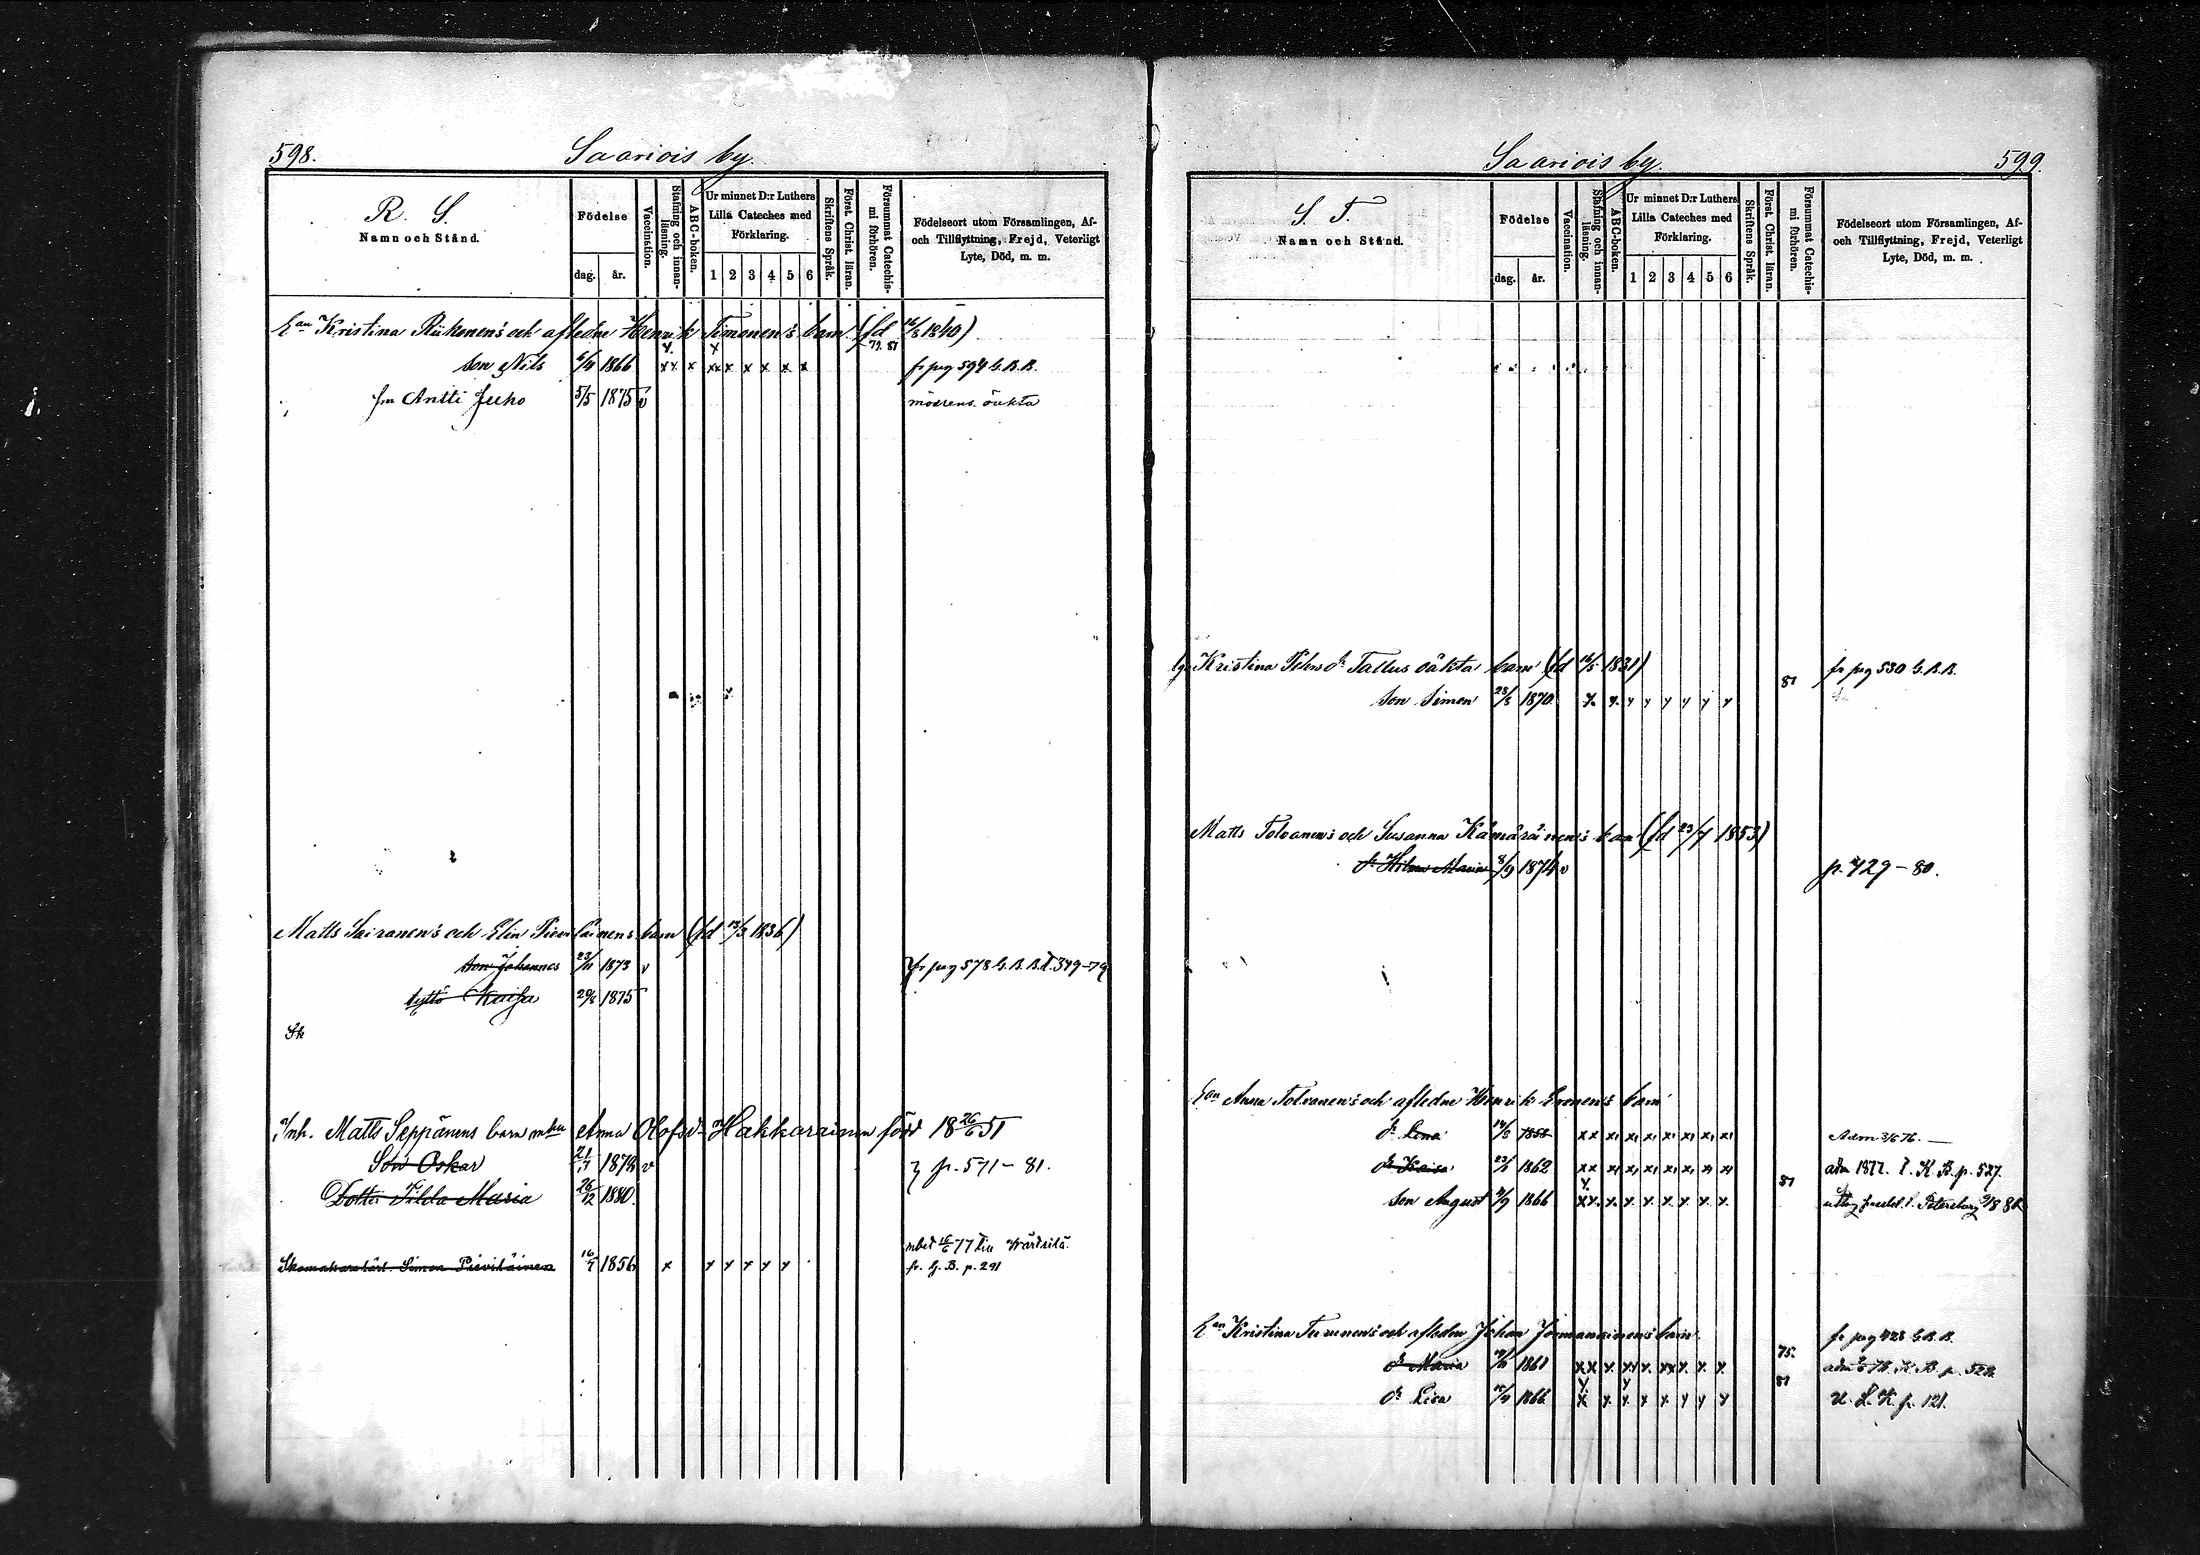 598.
Saariois by.
R. S.
Namn och Stånd.
Födelse
dag.
år.
Vaccination.
Stafning och innan-läsning.
ABC-boken.
Ur minnet D:r Luthers
Lilla Cateches med
Förklaring.
1 2 3 4 5 6
Skriftens Språk.
Först. Christ. läran.
Försummat Catechis-mi förhören.
Födelseort utom Församlingen, Af-
och Tillflyttning, Frejd, Veterligt
Lyte, Död, m. m.
Kristina Riikonen's och afledne Henrik Timonen's barn (fd 16/3 1840)
79. 81
son Nils 6/4 1866 xx x xx x x x x x fr pag 594 G.B.B.
Antti Juho 5/5 1875 v modrens oäkta
Matts Sairanen's och Elin barn (fd 13/3 1836)
son Johannes 23/11 1873 v fr pag 578 G.B.B. 349-79
tyttö Kaisa 1875
Sk
Inh. Matts Seppänens barn m Anna Olofsdr Hakkarainen född 18 26/6 51
Son Oskar 21/1 1878 v } p. 571 - 81.
Dotter Tilda Maria 26/12 1880.
mbet 16/6 77 Wärtsilä.
Simon Piiviläinen 16/7 1856 x x x x x x fr. G. B. p. 291
Saariois by.
599.
S. T.
Namn och Stånd.
Födelse
dag.
år.
Vaccination.
Stafning och innan-läsning.
ABC-boken.
Ur minnet D:r Luthers
Lilla Cateches med
Förklaring.
1 2 3 4 5 6
Skriftens Språk.
Först. Christ. läran.
Försummat Catechis-mi förhören.
Födelseort utom Församlingen, Af-
och Tillflyttning, Frejd, Veterligt
Lyte, Död, m. m.
Kristina Tallus oäkta barn (fd 1831) fr pag 530 G.B.B.
81
son Simon 28/3 1870 x x x x x x x x
Matts Tolvanen's och Susanna Kämäräinen's barn (fd 23/7 1853)
dr Hilma Maria 8/9 1874 v p. 729 - 80.
Anna Tolvanen's och afledne Henrik barn
dr Lena 1858 xx x x x x x x Adm 3/6 76.
dr Kaisa 1862 xx x x x x x x adm 1877. K B. p. 527.
81
son August 1866 xx x x x x x x Petersburg
Kristina Turunen's och afledne Johan Jormanainens barn fr pag 428 G.B.B.
75.
dr Maria 1861 xx x xx x xx x x x adm K. B. p.
81
dr Lisa 1866 x x x x x x x x L. K. p. 121.